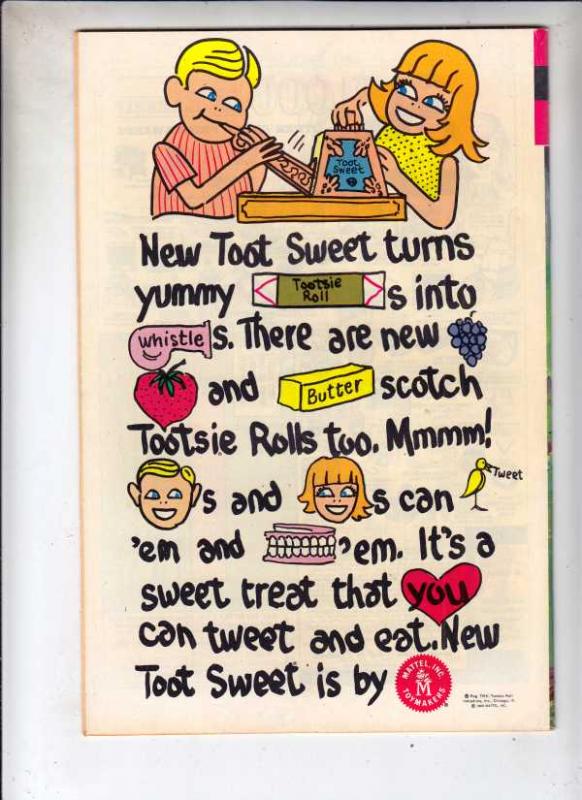 Toot
Sweet
New Toot Sweet turns
yummy Tootsie Roll s into
whistle s. There are new
and Butter scotch
Tootsie Rolls too. Mmmm!
Tweet
's and s can
'em and 'em. It's a
sweet treat that you
can tweet and eat. New
Toot Sweet is by MATTEL, INC. TOYMAKERS M